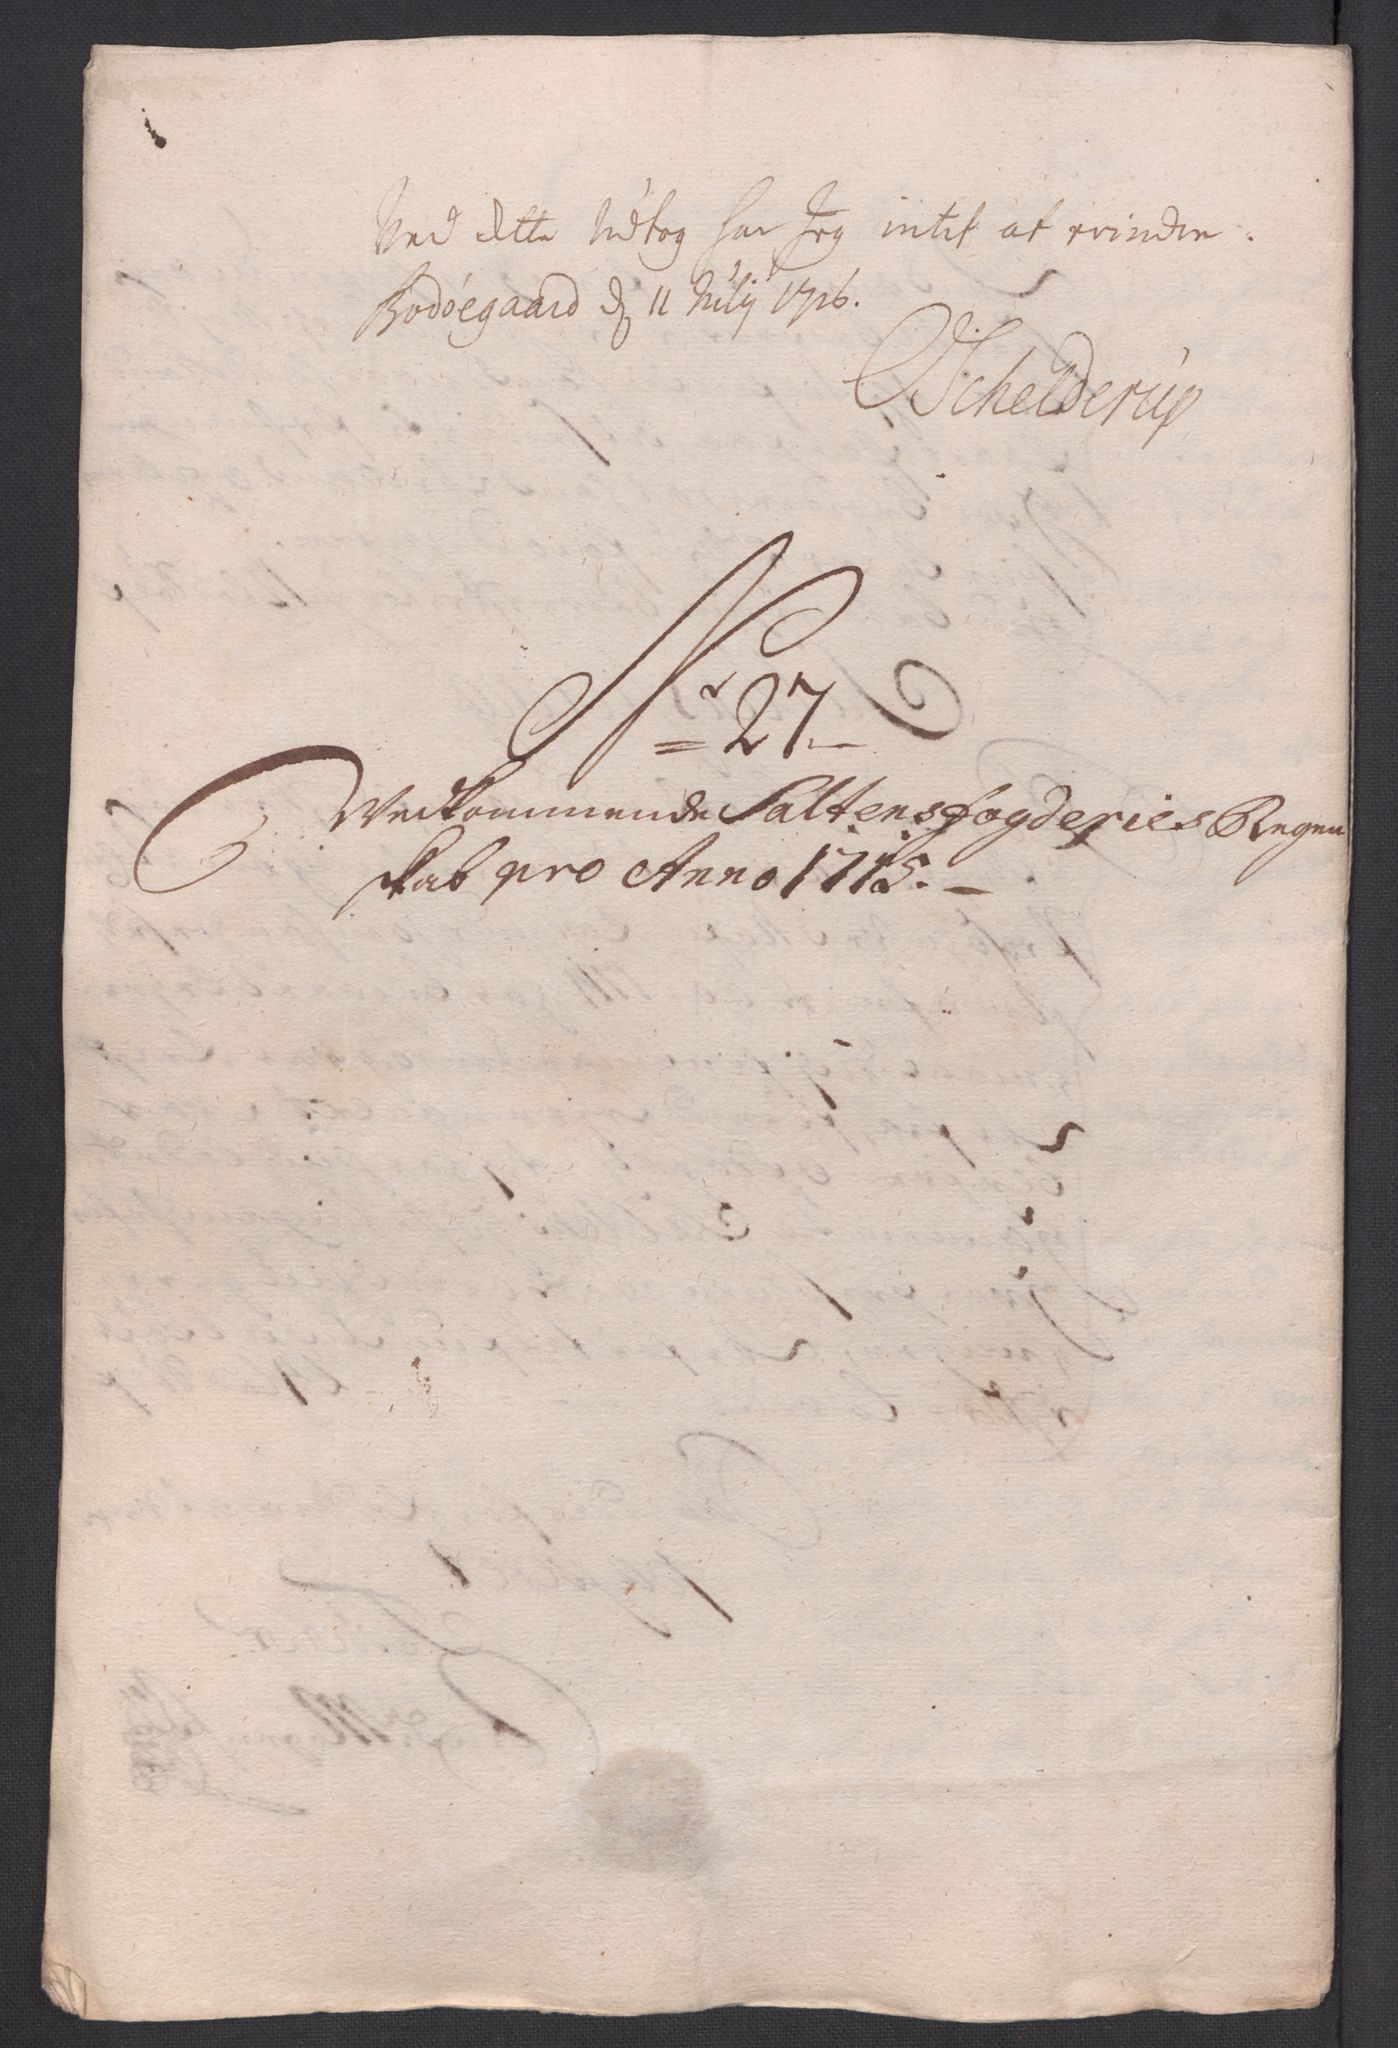 Ved dette Udtog har Jeg intet at erindre.
Bodøegaard d 11 Julij 1716.
Schelderup
No 27
Vedkommende Saltens fogderies Regen
skab pro Anno 1715.